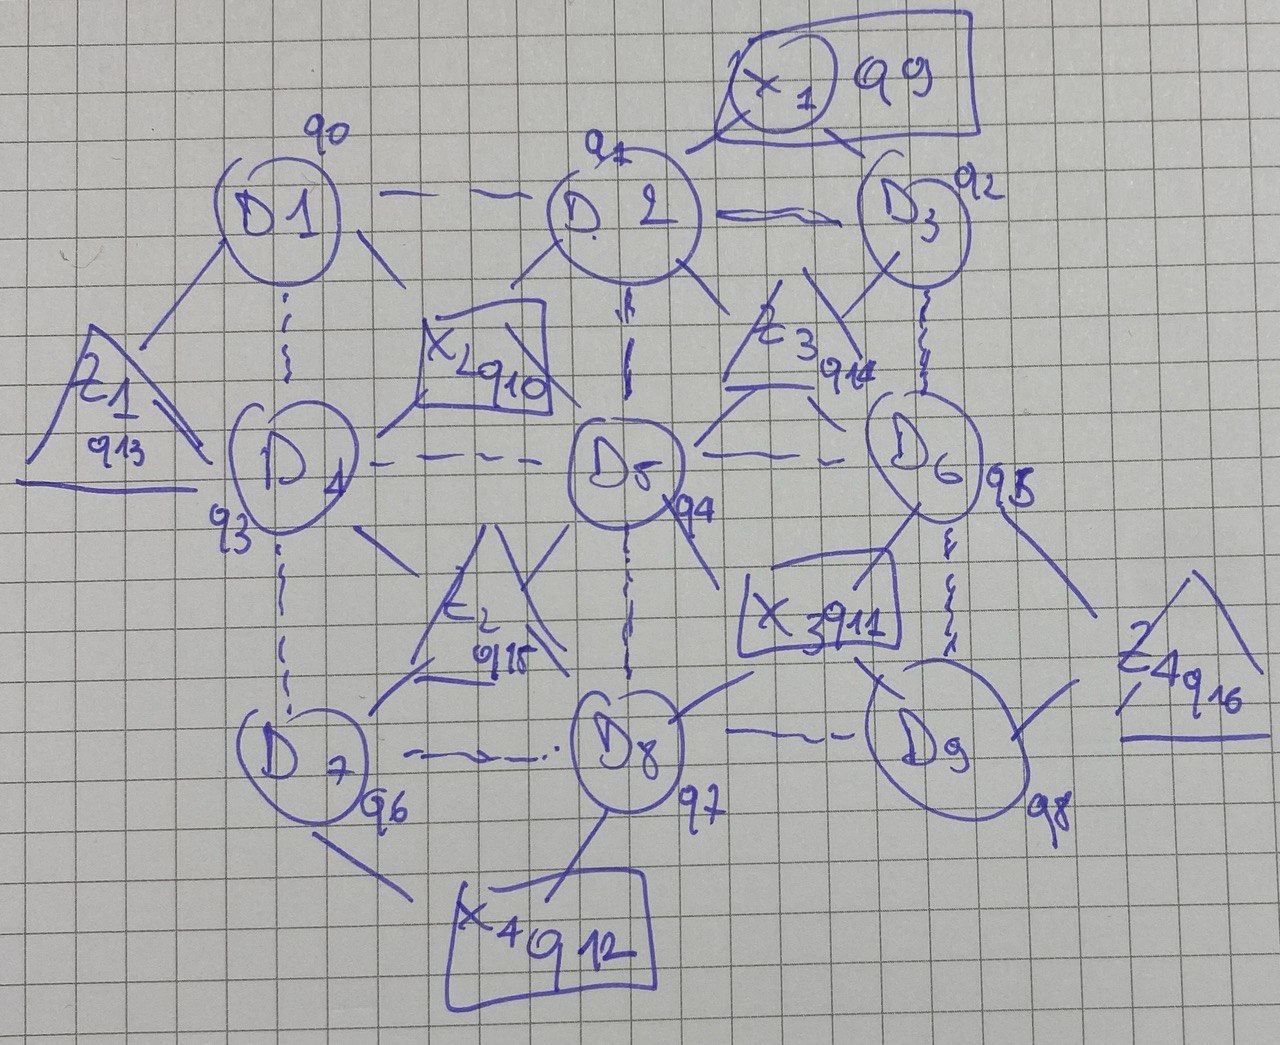 X1 q9
q0
q1
q2
D1
D2
D3
Z1
q13
X2 q10
Z3
q14
D4
q3
D5
q4
D6
q5
Z2
q15
X3 q11
Z4 q16
D7
q6
D8
q7
D9
q8
X4 q12